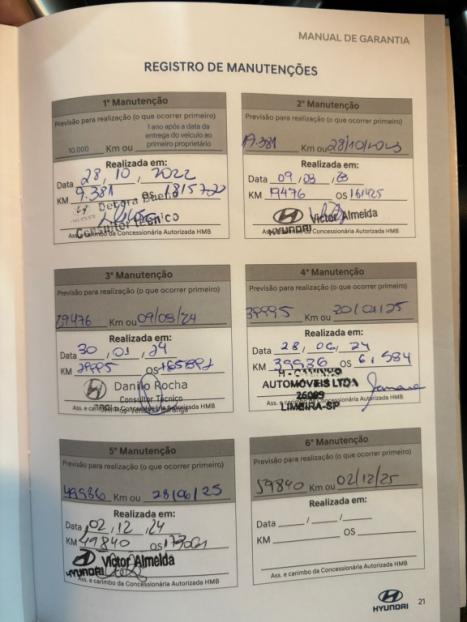 MANUAL DE GARANTIA
REGISTRO DE MANUTENÇÕES
1ª Manutenção
Previsão para realização (o que ocorrer primeiro)
10.000 Km ou 1 ano após a data da entrega do veículo ao primeiro proprietário
Realizada em:
Data 28, 10, 2022
KM 9.381 OS
Debora Bueno
Consultor Técnico
Ass. e carimbo da Concessionária Autorizada HMB
2ª Manutenção
Previsão para realização (o que ocorrer primeiro)
19.381 Km ou 28/10/2023
Realizada em:
Data 09, 08, 23
KM 19476 OS
HYUNDAI Victor Almeida
Ass. e carimbo da Concessionária Autorizada HMB
3ª Manutenção
Previsão para realização (o que ocorrer primeiro)
29476 Km ou 09/08/24
Realizada em:
Data 30, 01, 24
KM 29995 OS
Danilo Rocha
Consultor Técnico
4ª Manutenção
Previsão para realização (o que ocorrer primeiro)
39995 Km ou 30/01/25
Realizada em:
Data 28, 06, 24
KM 39986 OS 61,584
AUTOMÓVEIS LTDA
26009
LIMEIRA-SP
5ª Manutenção
Previsão para realização (o que ocorrer primeiro)
49986 Km ou 28/06/25
Realizada em:
Data 02, 12, 24
KM 49840 OS
HYUNDAI Victor Almeida
Ass. e carimbo da Concessionária Autorizada HMB
6ª Manutenção
Previsão para realização (o que ocorrer primeiro)
59840 Km ou 02/12/25
Realizada em:
Data ___/___/___
KM ______ OS ______
Ass. e carimbo da Concessionária Autorizada HMB
HYUNDAI
21